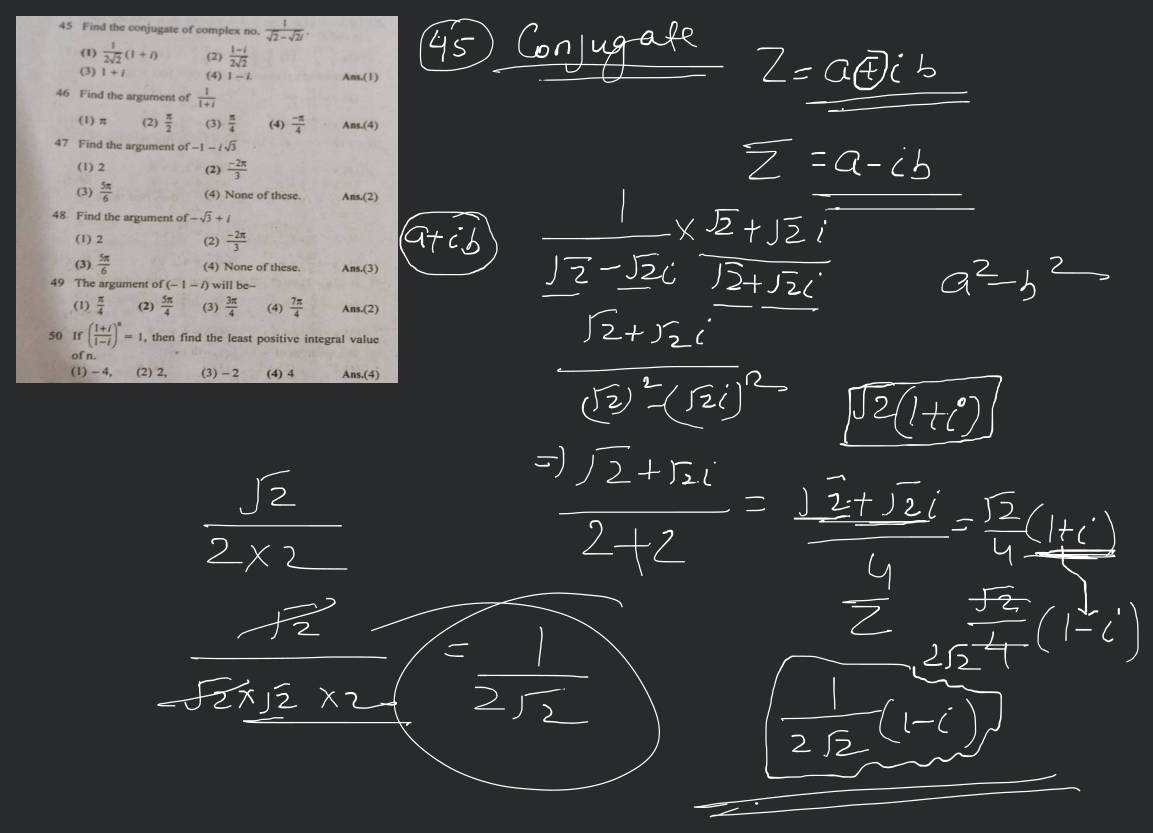 45 Find the conjugate of complex no. 1/(√2−√2i).
(1) 1/(2√2) (1 + i) (2) (1−i)/(2√2)
(3) 1 + i (4) 1 − i. Ans.(1)
46 Find the argument of 1/(1+i)
(1) π (2) π/2 (3) π/4 (4) −π/4 Ans.(4)
47 Find the argument of −1 − i√3
(1) 2 (2) −2π/3
(3) 5π/6 (4) None of these. Ans.(2)
48 Find the argument of −√3 + i
(1) 2 (2) −2π/3
(3) 5π/6 (4) None of these. Ans.(3)
49 The argument of (− 1 − i) will be−
(1) π/4 (2) 5π/4 (3) 3π/4 (4) 7π/4 Ans.(2)
50 If ((1+i)/(1−i))ⁿ = 1, then find the least positive integral value
of n.
(1) − 4, (2) 2, (3) − 2 (4) 4 Ans.(4)
45 Conjugate
Z = a + ib
Z̅ = a - ib
a+ib
1/(√2 - √2i) × (√2 + √2i)/(√2 + √2i)
a² - b²
(√2 + √2i)/((√2)² - (√2i)²)
√2(1+i)
=) (√2 + √2i)/(2+2) = (√2 + √2i)/4 = √2/4 (1+i)
Z̅ √2/4 (1-i)
2√2
1/(2√2) (1-i)
√2/(2×2)
√2/(√2×√2×2) = 1/(2√2)